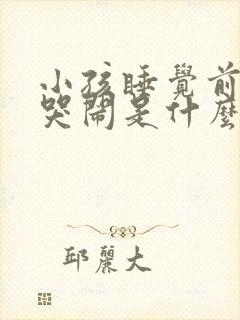 小孩睡覺前
哭鬧是什麼
邱麗大